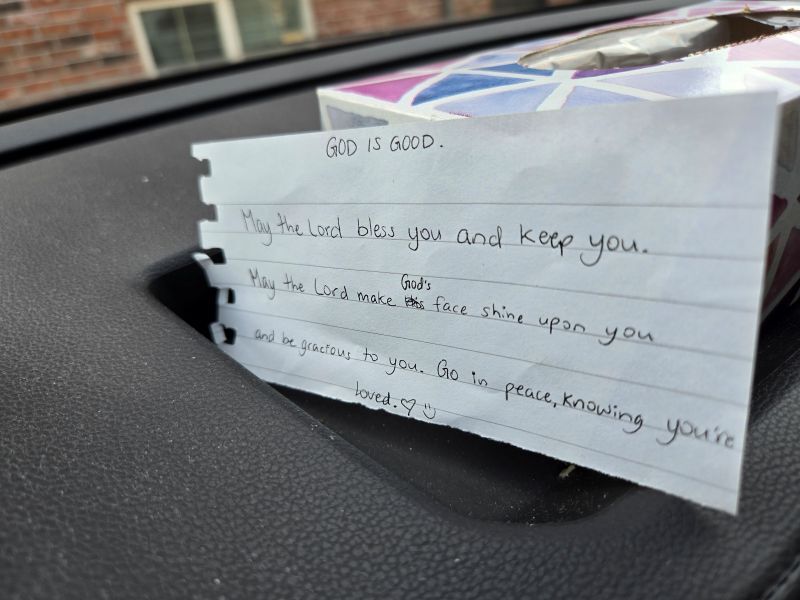 GOD IS GOOD.
May the Lord bless you and keep you.
May the Lord make God's face shine upon you
and be gracious to you. Go in peace, knowing you're
loved.♡ :)